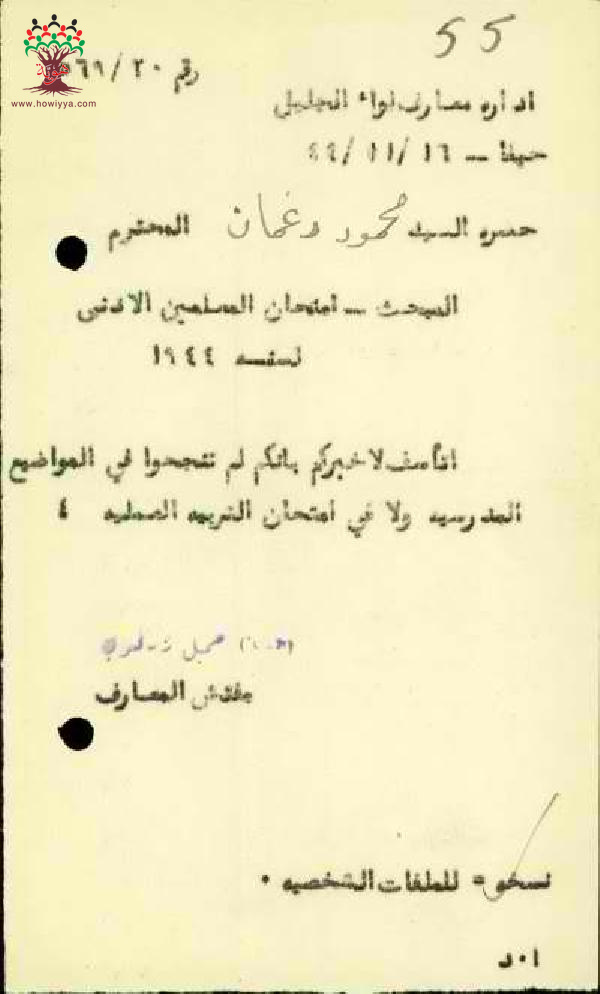 55
www.howiyya.com
رقم ٢٠/٦٩
اداره معارف لواء الجليل
حيفا – ١٦/١١/٤٤
حضره السيد محمود دغمان المحترم
المبحث – امتحان المعلمين الادنى
لسنه ١٩٤٤
اتأسف لاخبركم بانكم لم تنجحوا في المواضيع
المدرسيه ولا في امتحان التربيه العمليه ٤
مفتش المعارف
نسخه = للملفات الشخصيه ٠
ا٠د